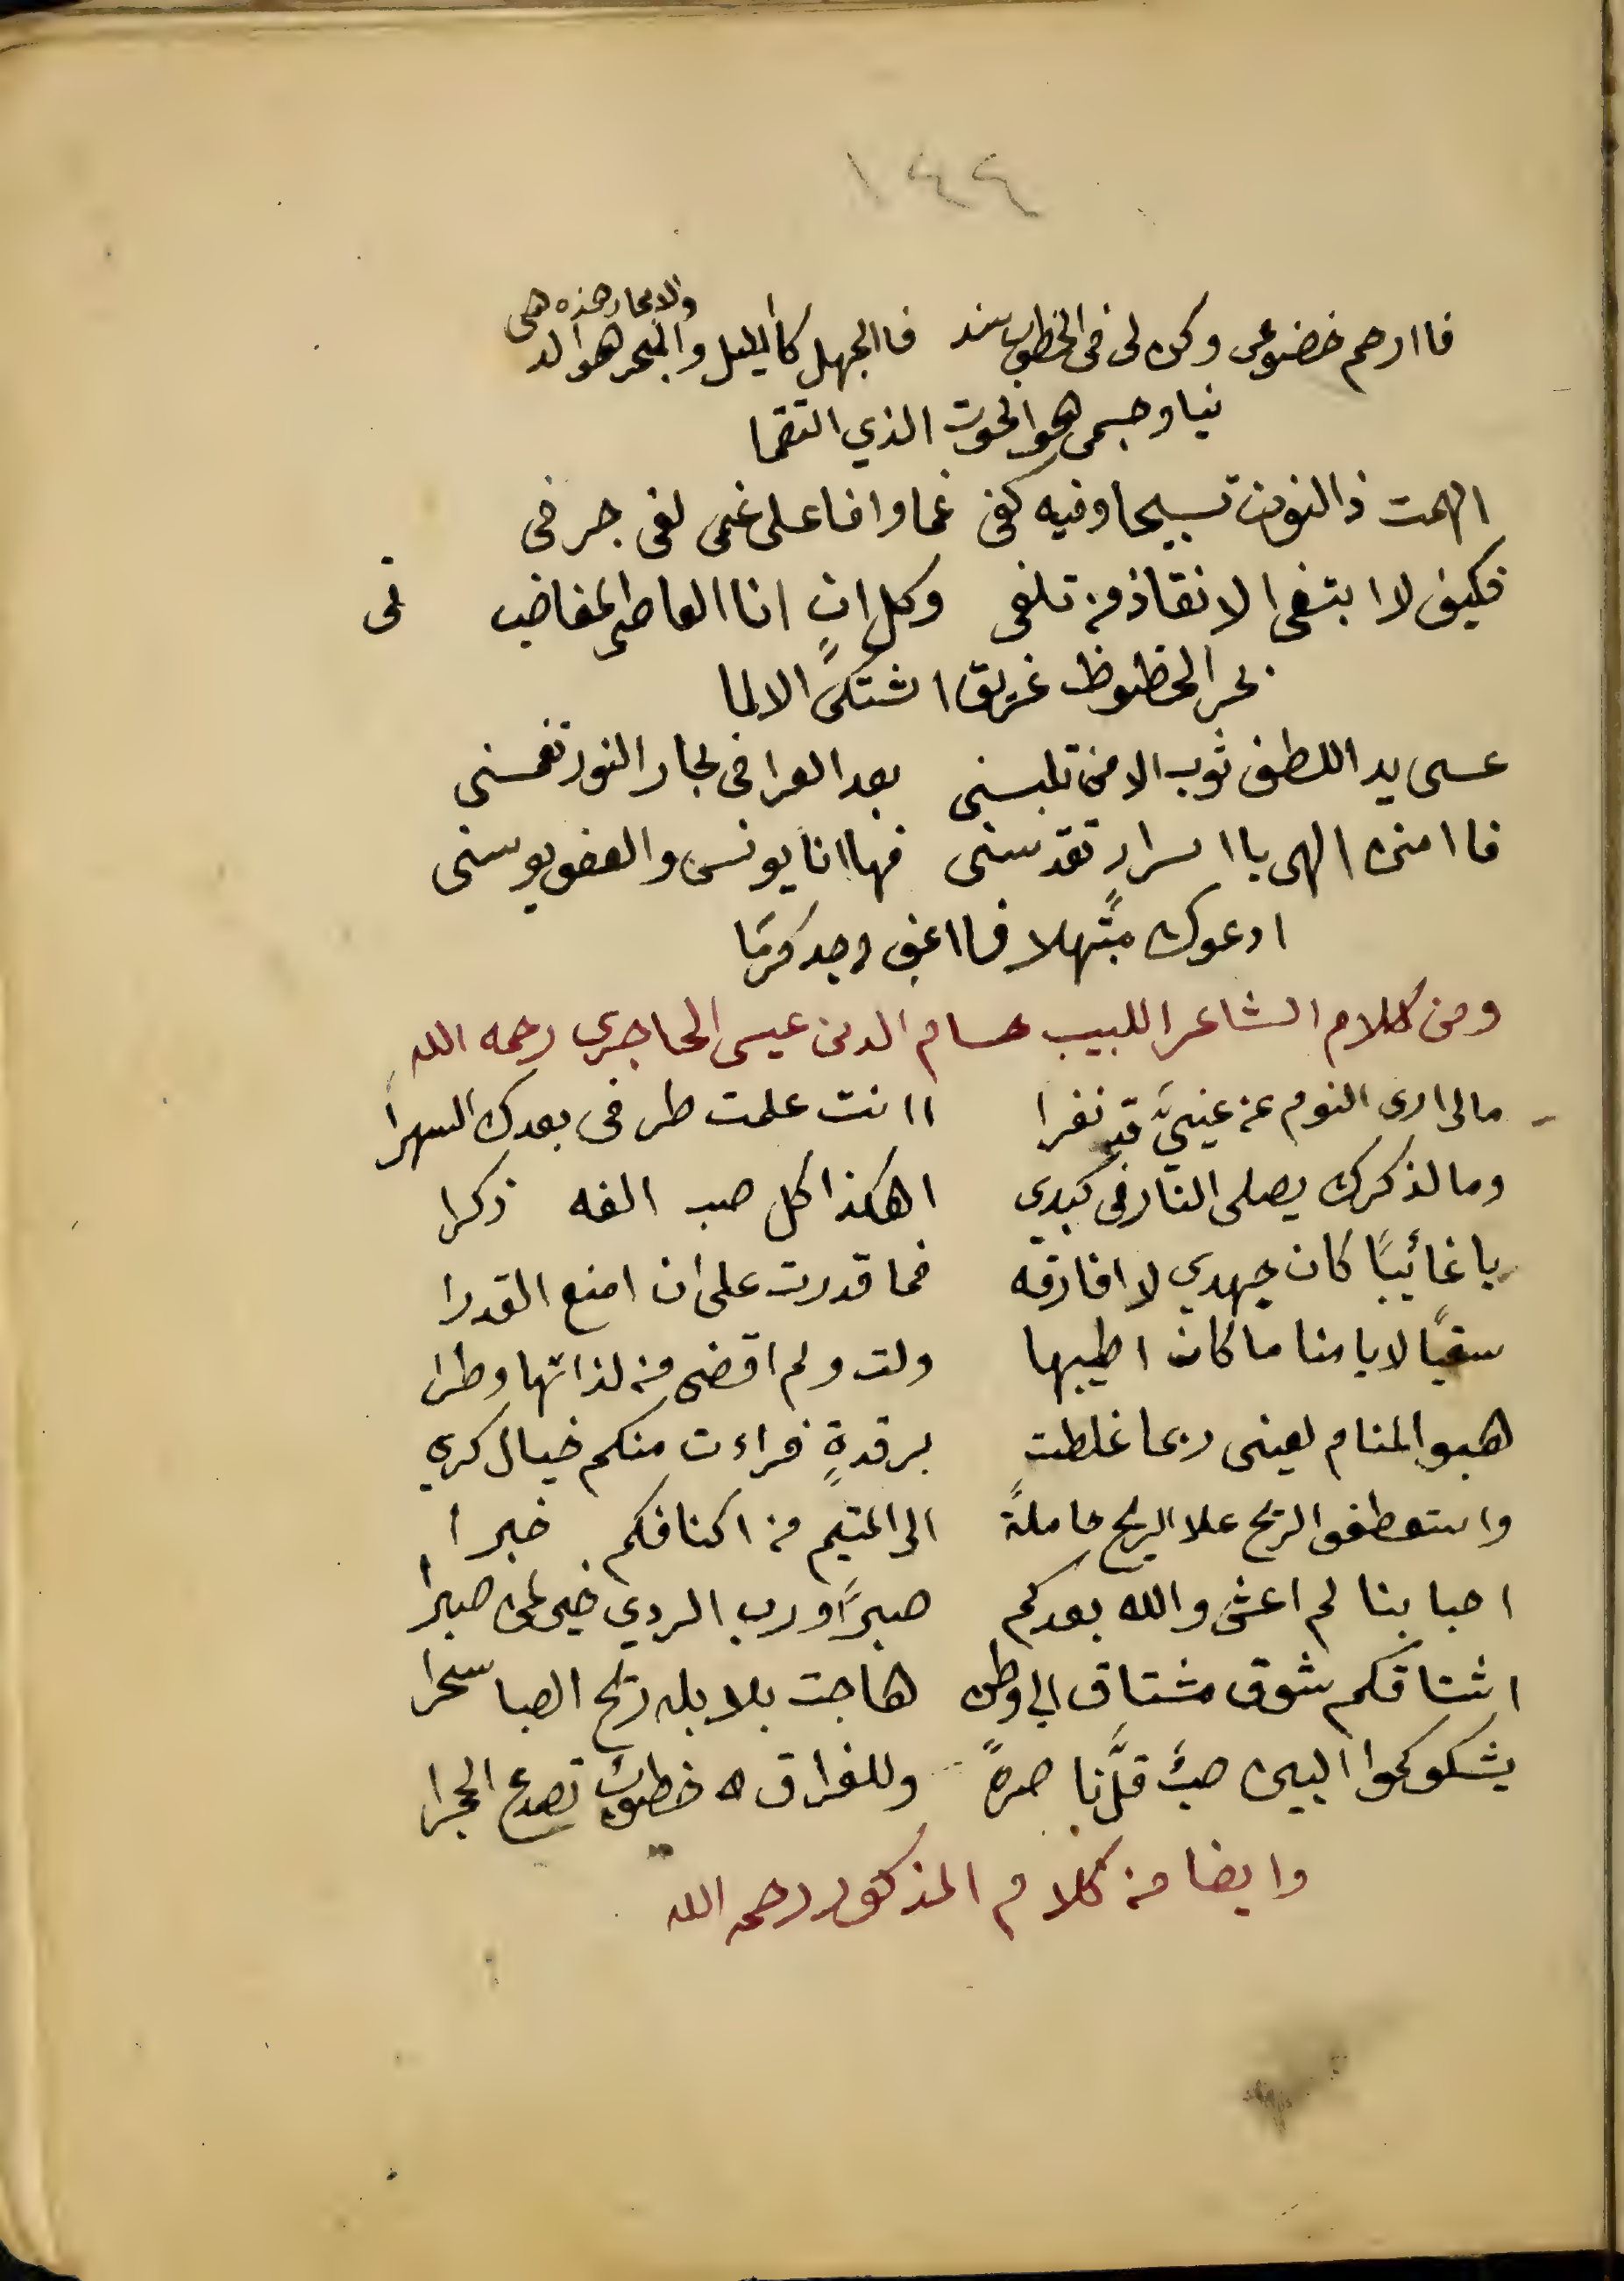 ١٤٤
والابحار هذه هى
فاارحم خضوعى وكن لى فى الخطوب سند فاالجهل كالليل والبحر هو الد
نيا وجسمى هو الحوت الذي التقما
الهمت ذالنون تسبيحا وفيه كفى غما وافا على غمى لفى جرفى
فكيف لا ابتغى الانقاذ من تلفى وكل انٍ انا العاصى المغاضب فى
بحر الحظوظ غريق اشتكى الالما
عسى يد اللطف ثوب الامن تلبسنى بعد العرا فى بحار النور تغمسنى
فاامنن الهى باا سرارٍ تقدسنى فهاانا يونس والعفو يوسنى
ادعوك مبتهلا فااغفر وجد كرمًا
ومن كلام الشاعر اللبيب حسام الدين عيسى الحاجري رحمه الله
مالى ارى النوم عن عينيَّ قد نفرا اانت علمت طرفى بعدك السهرا
ومالذكرك يصلى النار فى كبدي اهكذا كل صب الفه ذكرا
ياغائيبًا كان جهدي لا افارقه فما قدرت على ان امنع القدرا
سقيًا لايامنا ما كان اطيبها ولت ولم اقضى من لذاتها وطرا
هبوالمنام لعينى ربما غلطت برقدةٍ فراءت منكم خيال كرى
واستعطفو الريح علا الريح حاملةً الى المتيم من اكنافكم خبرا
احبابنا لم اعش والله بعدكم صبرًا ورب الردي خير لمن صبرا
اشتاقكم شوق مشتاق الى وطن هاجت بلابله ريح الصبا سحرا
يشكو كجوا البين صبٌ قلَّ ناصرهً وللفراق خطوبٌ تصدع الحجرا
وايضا من كلام المذكور رحمه الله